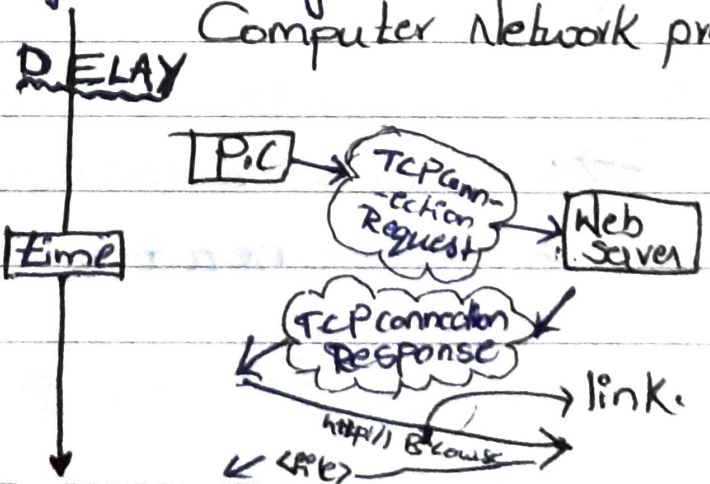 Computer Network pr
DELAY
P.C
TCP Conn-
-ection
Request
Web
Server
time
TCP connection
Response
link.
http://
<file>